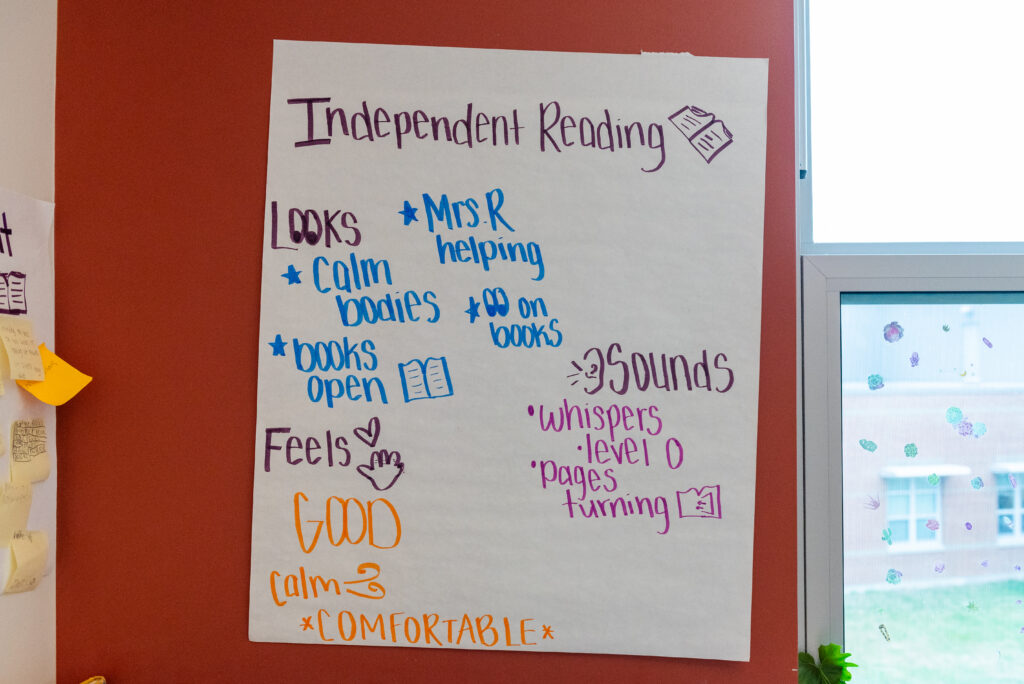 Independent Reading
Looks
* Calm
bodies
* books
open
* Mrs. R
helping
* on
books
Feels
GOOD
calm
*COMFORTABLE*
Sounds
•whispers
•level 0
•pages
turning